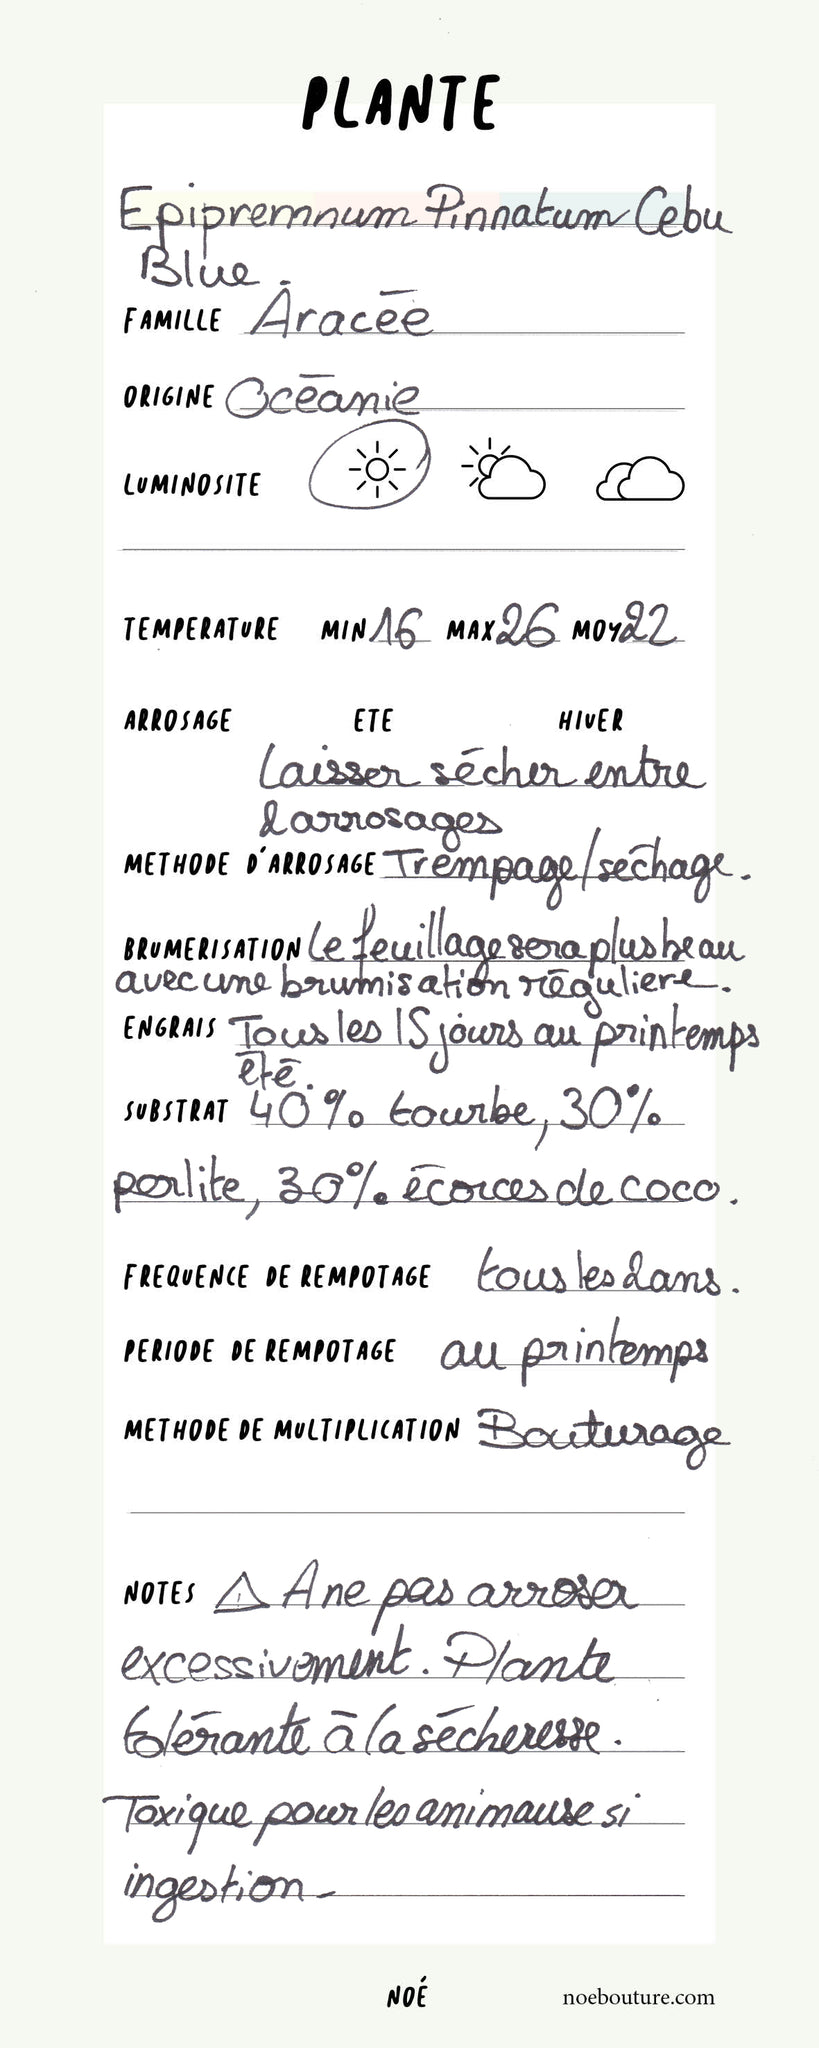 PLANTE
Epipremnum Pinnatum Cebu
Blue.
FAMILLE Aracée
ORIGINE Océanie
LUMINOSITE
TEMPERATURE MIN 16 MAX 26 MOY 22
ARROSAGE ETE HIVER
Laisser sécher entre
2 arrosages
METHODE D'ARROSAGE Trempage/séchage.
BRUMERISATION Le feuillage sera plus beau
avec une brumisation régulière.
ENGRAIS Tous les 15 jours au printemps
été.
SUBSTRAT 40% tourbe, 30%
perlite, 30% écorces de coco.
FREQUENCE DE REMPOTAGE tous les 2 ans.
PERIODE DE REMPOTAGE au printemps
METHODE DE MULTIPLICATION Bouturage
NOTES ⚠ A ne pas arroser
excessivement. Plante
tolérante à la sécheresse.
Toxique pour les animause si
ingestion-
NOÉ noebouture.com